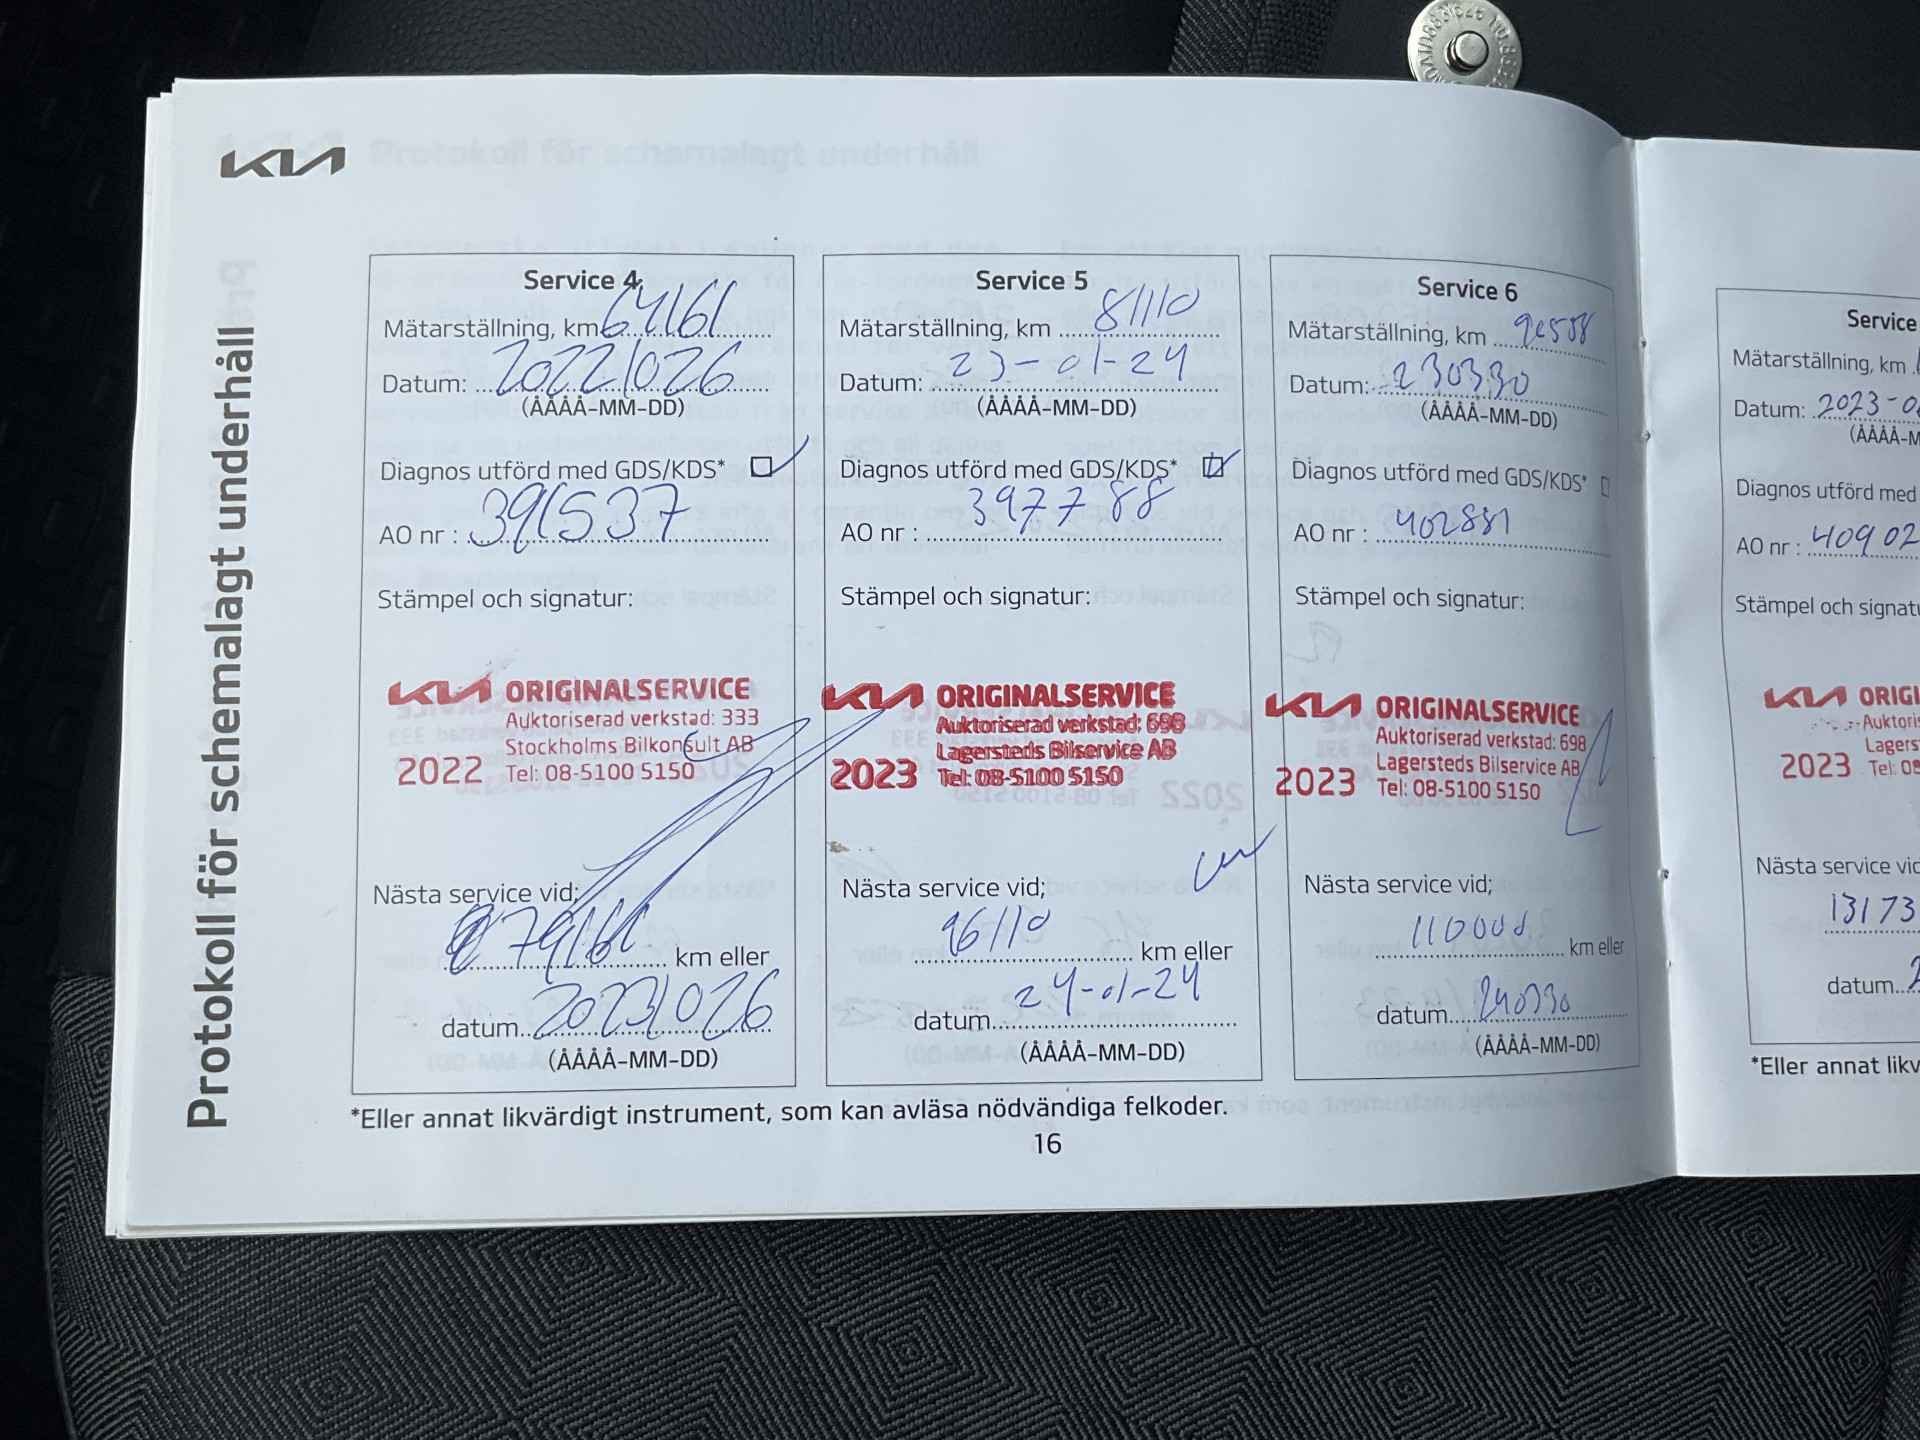 KIA
Protokoll för schemalagt underhåll
Service 4
Mätarställning, km 64161
Datum: 20221026
(ÅÅÅÅ-MM-DD)
Diagnos utförd med GDS/KDS*
AO nr : 391537
Stämpel och signatur:
KIA ORIGINALSERVICE
Auktoriserad verkstad: 333
Stockholms Bilkonsult AB
2022 Tel: 08-5100 5150
Nästa service vid;
79161 km eller
datum 20231026
(ÅÅÅÅ-MM-DD)
Service 5
Mätarställning, km 81110
Datum: 23-01-24
(ÅÅÅÅ-MM-DD)
Diagnos utförd med GDS/KDS*
AO nr : 397788
Stämpel och signatur:
KIA ORIGINALSERVICE
Auktoriserad verkstad: 698
Lagersteds Bilservice AB
2023 Tel: 08-5100 5150
Nästa service vid;
96110 km eller
datum 24-01-24
(ÅÅÅÅ-MM-DD)
Service 6
Mätarställning, km
Datum: 230330
(ÅÅÅÅ-MM-DD)
Diagnos utförd med GDS/KDS*
AO nr : 402881
Stämpel och signatur:
KIA ORIGINALSERVICE
Auktoriserad verkstad: 698
Lagersteds Bilservice AB
2023 Tel: 08-5100 5150
Nästa service vid;
km eller
datum 240330
(ÅÅÅÅ-MM-DD)
*Eller annat likvärdigt instrument, som kan avläsa nödvändiga felkoder.
16
Service
Mätarställning, km
Datum: 2023-0
(ÅÅÅÅ-M
Diagnos utförd med
AO nr : 40902
Stämpel och signatu
KIA ORIGI
Auktoris
Lagerst
2023 Tel: 08
Nästa service vid
13173
datum
*Eller annat likv